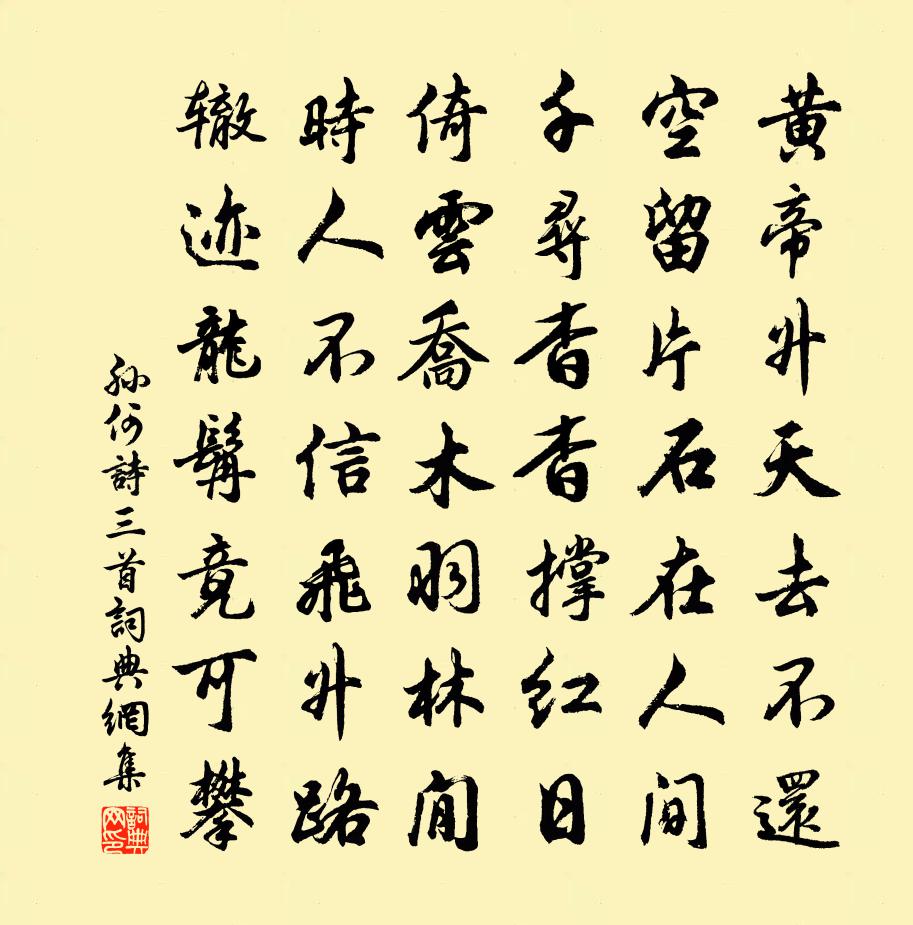 黄帝升天去不還
空留片石在人间
千尋杳杳撑红日
倚雲喬木羽林閒
時人不信飛升路
辙迹龍髯竟可攀
孙何詩三首詞典網集
詞典网印